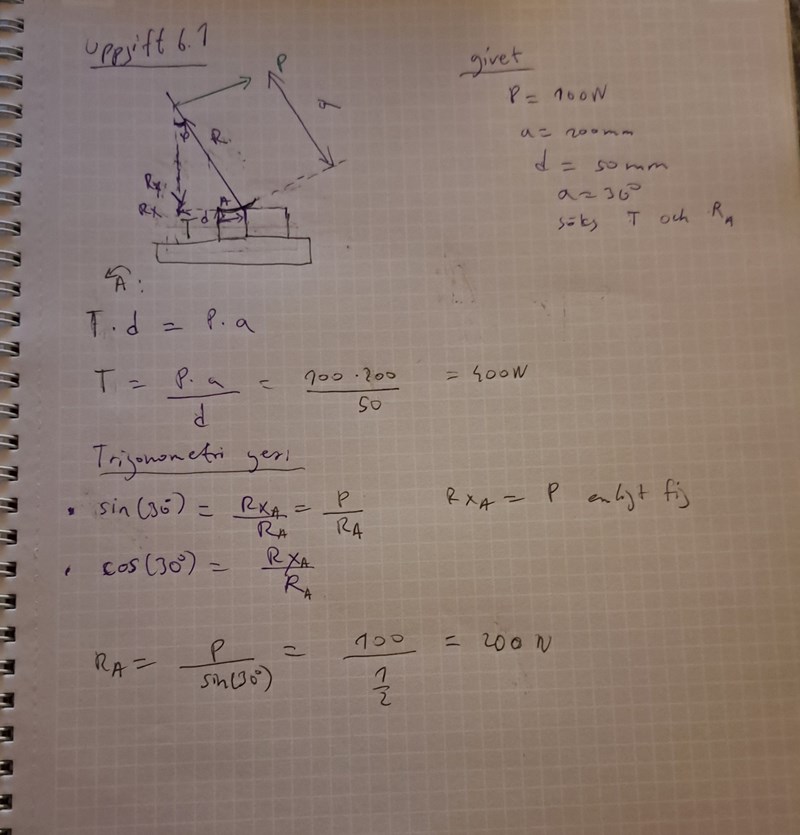 uppgift 6.1
givet
P
a
R
Rx
Rx
A
T
d
P = 100N
a = 200mm
d = 50mm
a = 30°
söks T och R_A
A:
T · d = P · a
T = P · a / d = 100 · 200 / 50 = 400N
Trigonometri ger:
• sin(30°) = Rx_A / R_A = P / R_A
Rx_A = P enligt fig
• cos(30°) = Rx_A / R_A
R_A = P / sin(30°) = 100 / 1/2 = 200N